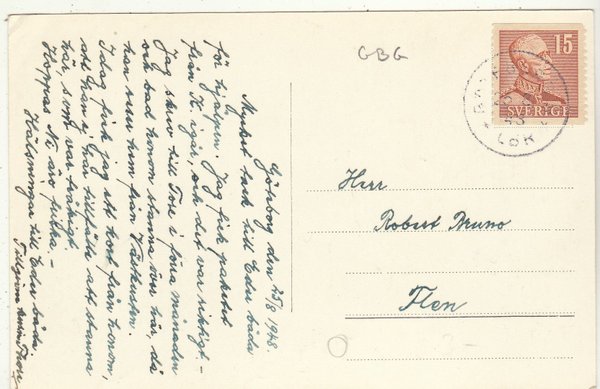 Göteborg den 25/8 1948
Mycket tack till Eder båda
för hjälpen. Jag fick paketet
från K. igår, och det var riktigt. –
Jag skrev till Tore i förra månaden
och bad honom stanna över här, då
han reser hem från Västkusten.
Idag fick jag ett kort från honom,
att han ej får tillfälle att stanna
här, som var tråkigt.
Hoppas Ni äro friska. –
Hälsningar till Eder båda.
Tillgivna
GBG
15
SVERIGE
LBR
Herr
Robert Bruno
Flen